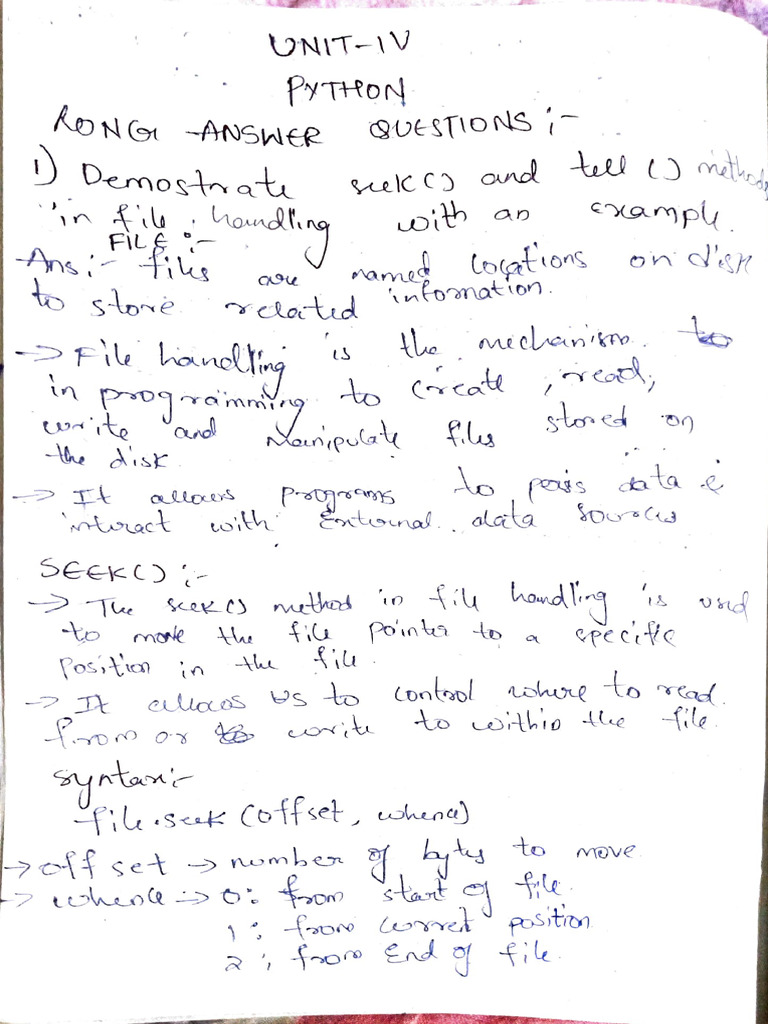 UNIT-IV
PYTHON
LONG ANSWER QUESTIONS :-
1) Demostrate seek() and tell () methods
in file handling with an example.
FILE :-
Ans :- files are named locations on disk
to store related information.
→ File handling is the mechanism to
in programming to create, read,
write and Manipulate files stored on
the disk
→ It allows programs to data &
interact with External data sources
SEEK() :-
→ The seek() method in file handling is used
to move the file pointer to a specific
position in the file.
→ It allows us to control where to read
from or to write to within the file.
syntax :-
file.seek (offset, whence)
→ offset → number of bytes to move
→ whence → 0: from start of file.
1: from current position
2: from End of file.